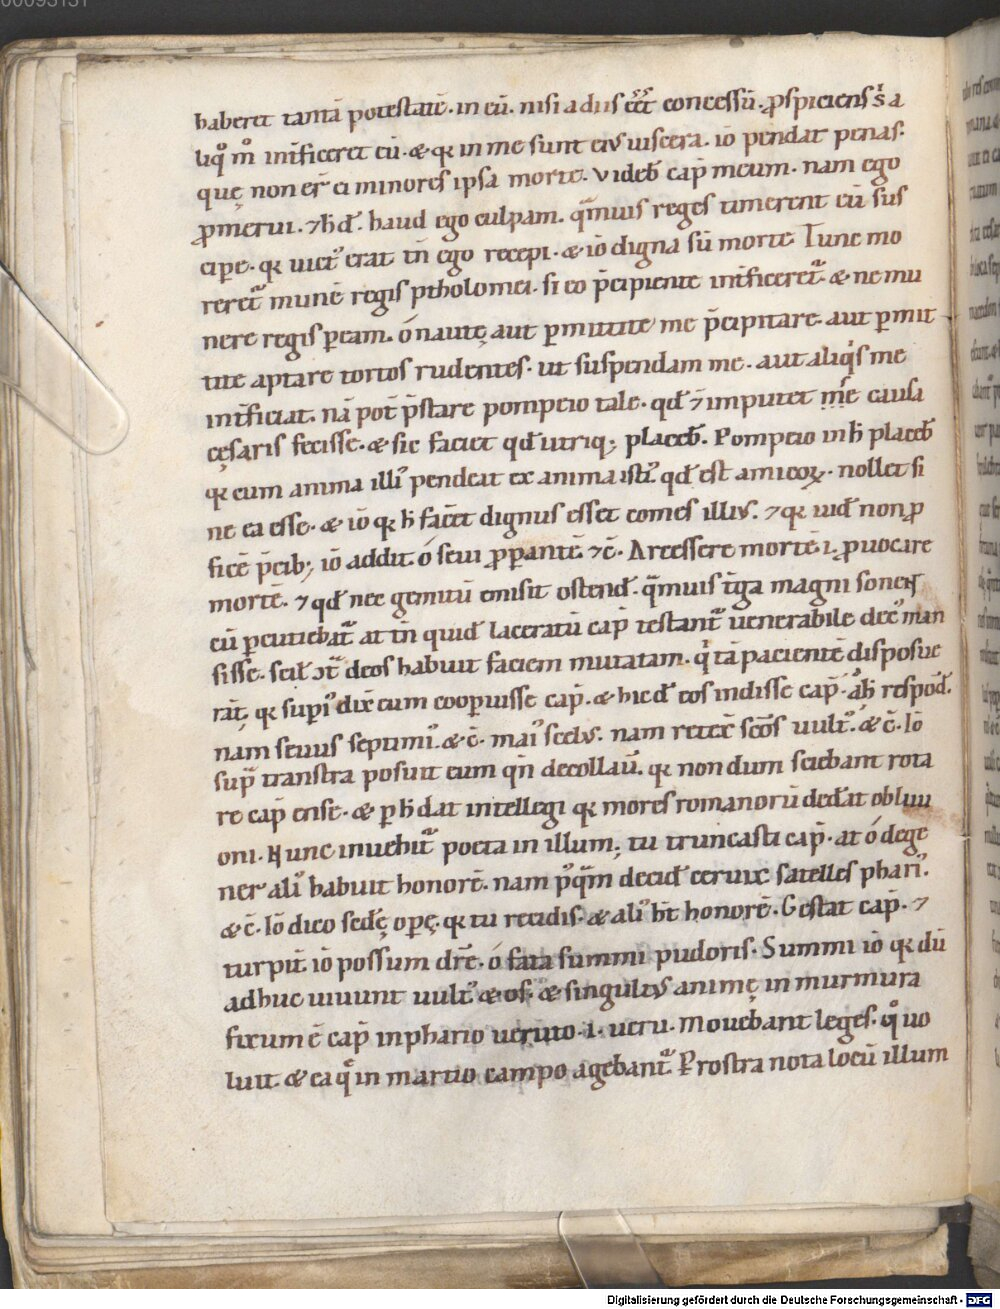 00095151
haberet tantā potestatē. in eū. nisi a diis eēt concessū. ꝓspiciens s; a
liqͦ m̊ int̄ficeret eū. & qꝛ in me sunt eius viscera. iō pendat penas.
quę non er̄ ei minores ipsa morte. Videb cap̄ meum. nam ego
ꝓmerui. ⁊ hđ. haud ego culpam. qm̄uis reges timerent eū sus
cipe. qꝛ uict᾽ erat tn̄ ego recepi. & iō digna sū morte. Tunc mo
reret᷑ munē regis ptholomei. si eo p̄cipiente int̄ficeret᷑. & ne mu
nere regis peam. ó nautę aut pmittite me p̄cipitare. aut pmit
tite aptare tortos rudentes. ut suspendam me. aut aliqͥs me
int̄ficiat. nā pot̄ p̄stare pompeio tale. qđ n̄ imputet m̄se causa
cęsaris fecisse. & sic faciet qđ utriq; placeb. Pompeio in h̄ placeb
qꝛ cum anima illi᾽ pendeat ex anima isti᾽ qđ est amicoꝝ. nollet si
ne ea esse. & iō qꝛ h̄ fac̄et dignus esset comes illius. ⁊ qꝛ uiđ non ꝓ
ficē p̄cib; iō addit. ó seui ꝓpantē ⁊c̄. Arcessere mortē .i. ꝓuocare
mortē. ⁊ qđ nec gemitū emisit ostend̄. qm̄uis t̄ga magni soneꝝ
cū pcutiebat᷑ at tn̄ quid laceratū cap̄ testant᷑ uenerabile dec᾽ man
sisse. scil ɔt̄ deos habuit faciem mutatam. qͥ tā pacientē disposue
rāt. qꝛ sup̄i᾽ dix̄ eum cooperuisse cap̄. & hic đ eos indisse cap̄. ah̄ respōd̄.
nam seuus septimi᾽. &c̄. mai᾽ scelus. nam retex̄ sc̄os uult᾽. &c̄. Iō
sup̄ transtra posuit eum qn̄ decollaū. qꝛ nondum sciebant rota
re cap̄ ense. & p h̄ dat intellegi qꝛ mores romanorū ded̄at obliui
oni. Nunc inuehit᷑ poeta in illum; tu truncasti cap̄. at ó dege
ner ali᾽ habuit honorē. nam p᾽qm̄ decid̄ ceruix satelles phari᾽.
&c̄. Iō dico sedę opę. qꝛ tu recidis. & ali᾽ ht̄ honorē. Gestat cap̄. ⁊
turpit̄. iō possum dr̄e. ó fata summi pudoris. Summi iō qꝛ dū
adhuc uiuunt uult᾽ & os. & singultus animę in murmura
fixum ē cap̄ in phario ueruto .i. ueru. Mouebant leges. qͦ uo
luit & ea qͤ in martio campo agebant᷑. P rostra nota locū illum
Digitalisierung gefördert durch die Deutsche Forschungsgemeinschaft - DFG